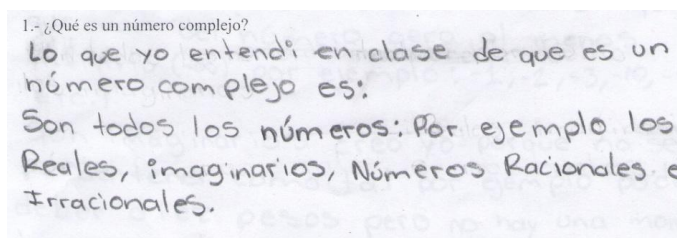 1.- ¿Qué es un número complejo?
Lo que yo entendi en clase de que es un
número complejo es:
Son todos los números: Por ejemplo los
Reales, imaginarios, Números Racionales e
Irracionales.